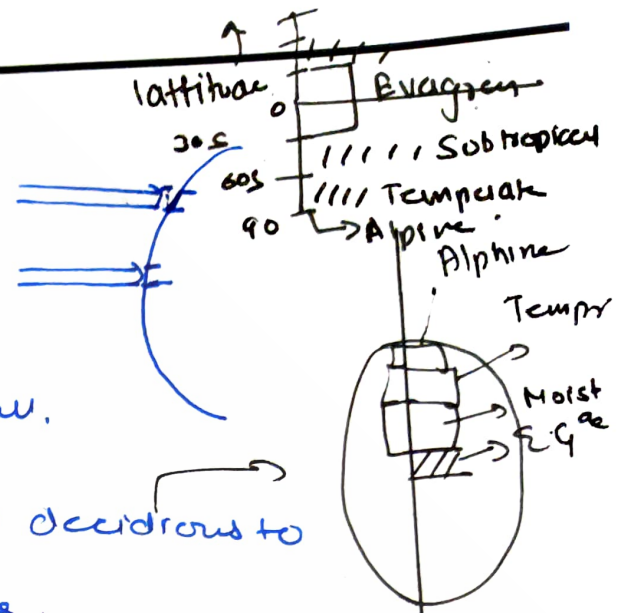 lattitude
Evagreen
0
30S
Subtropical
60S
Temperate
90
Alpine
Alphine
Tempr
Moist
E.G
w.
decidious to